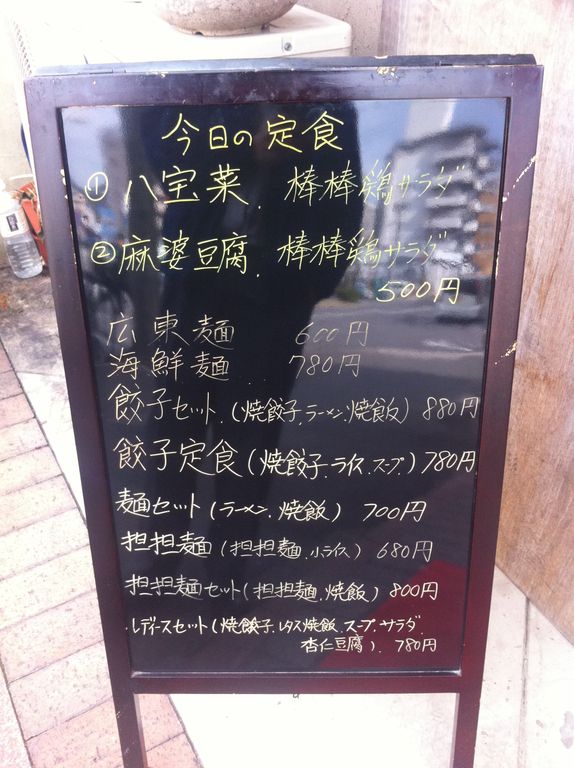 今日の定食
① 八宝菜. 棒棒鶏サラダ
② 麻婆豆腐. 棒棒鶏サラダ
500円
広東麺 600円
海鮮麺 780円
餃子セット.(焼餃子.ラーメン.焼飯) 880円
餃子定食(焼餃子.ライス.スープ) 780円
麺セット(ラーメン.焼飯) 700円
担担麺(担担麺.小ライス) 680円
担担麺セット(担担麺.焼飯) 800円
.レディースセット(焼餃子.レタス焼飯.スープ.サラダ.
杏仁豆腐). 780円